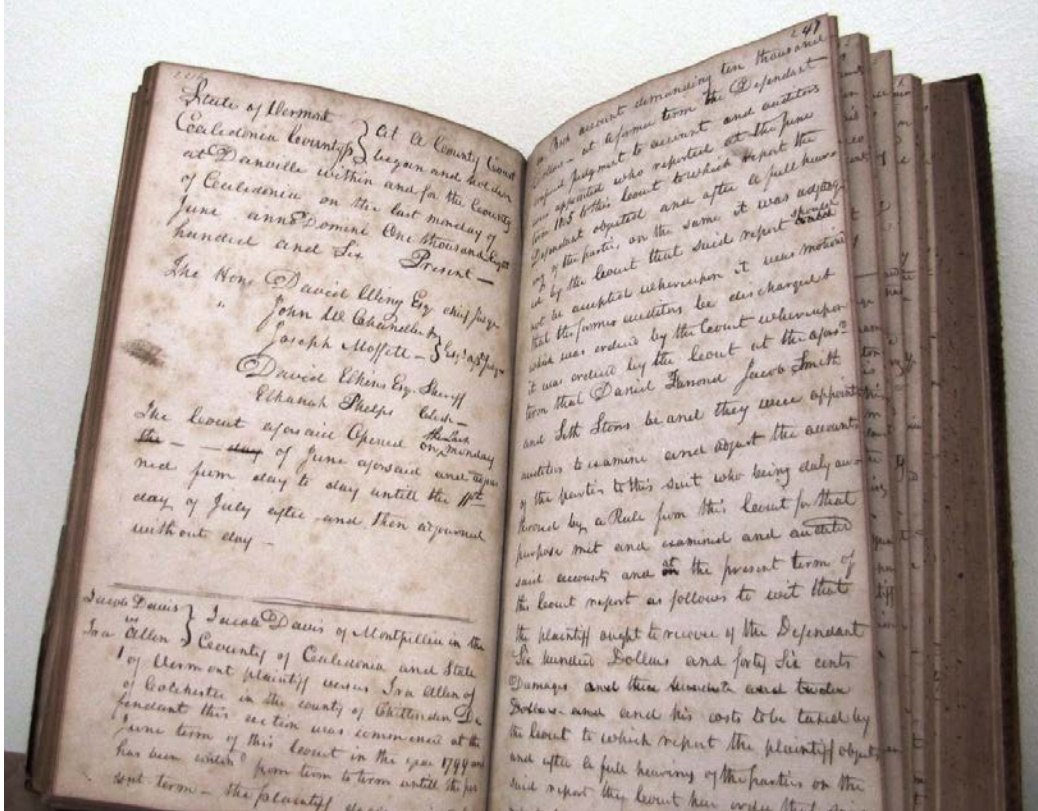 State of Vermont
Caledonia County ss } At a County Court
begun and holden
at Danville within and for the County
of Caledonia on the last monday of
June anno Domini One thousand Eight
hundred and Six Present —
The Hon. David Wing Esq chief judge
" John W Chandler &
Joseph Moffett — } Esqrs
David Elkins Esq. Sheriff
Elkanah Phelps Clerk —
The Court aforesaid Opened the last
on monday
the — day of June aforesaid and adjour
ned from day to day untill the 11th
day of July after and then adjourned
without day —
Jacob Davis
vs
Ira Allen } Jacob Davis of Montpellier in the
County of Caledonia and State
of Vermont plaintiff versus Ira Allen of
of Colchester in the county of Chittenden De
fendant this action was commenced at the
June term of this Court in the year 1799 and
has been contind from term to term untill the pre
sent term — the plaintiff
247
account demanding ten thousand
Dollars — at a former term the Defendant
judgment to account and auditors
were appointed who reported at the June
term 1805 to this Court to which report the
Defendant objected and after a full hear
ing of the parties on the same it was adjudg
ed by the Court that said report should
not be accepted whereupon it was motioned
that the former auditors be discharged &
which was ordered by the Court whereupon
it was ordered by the Court at the aforesd
term that Daniel Jacob Smith
and Seth Stons be and they were appointed
auditors to examine and adjust the accounts
of the parties to this suit who being duly au
thorised by a Rule from this Court for that
purpose met and examined and audited
said accounts and at the present term of
this Court report as follows to wit that
the plaintiff ought to recover of the Defendant
Six hundred Dollars and forty Six cents
Damages and
Dollars and and his costs to be taxed by
the Court to which report the plaintiff object
and after a full hearing of the parties on the
said report they Court here order that said